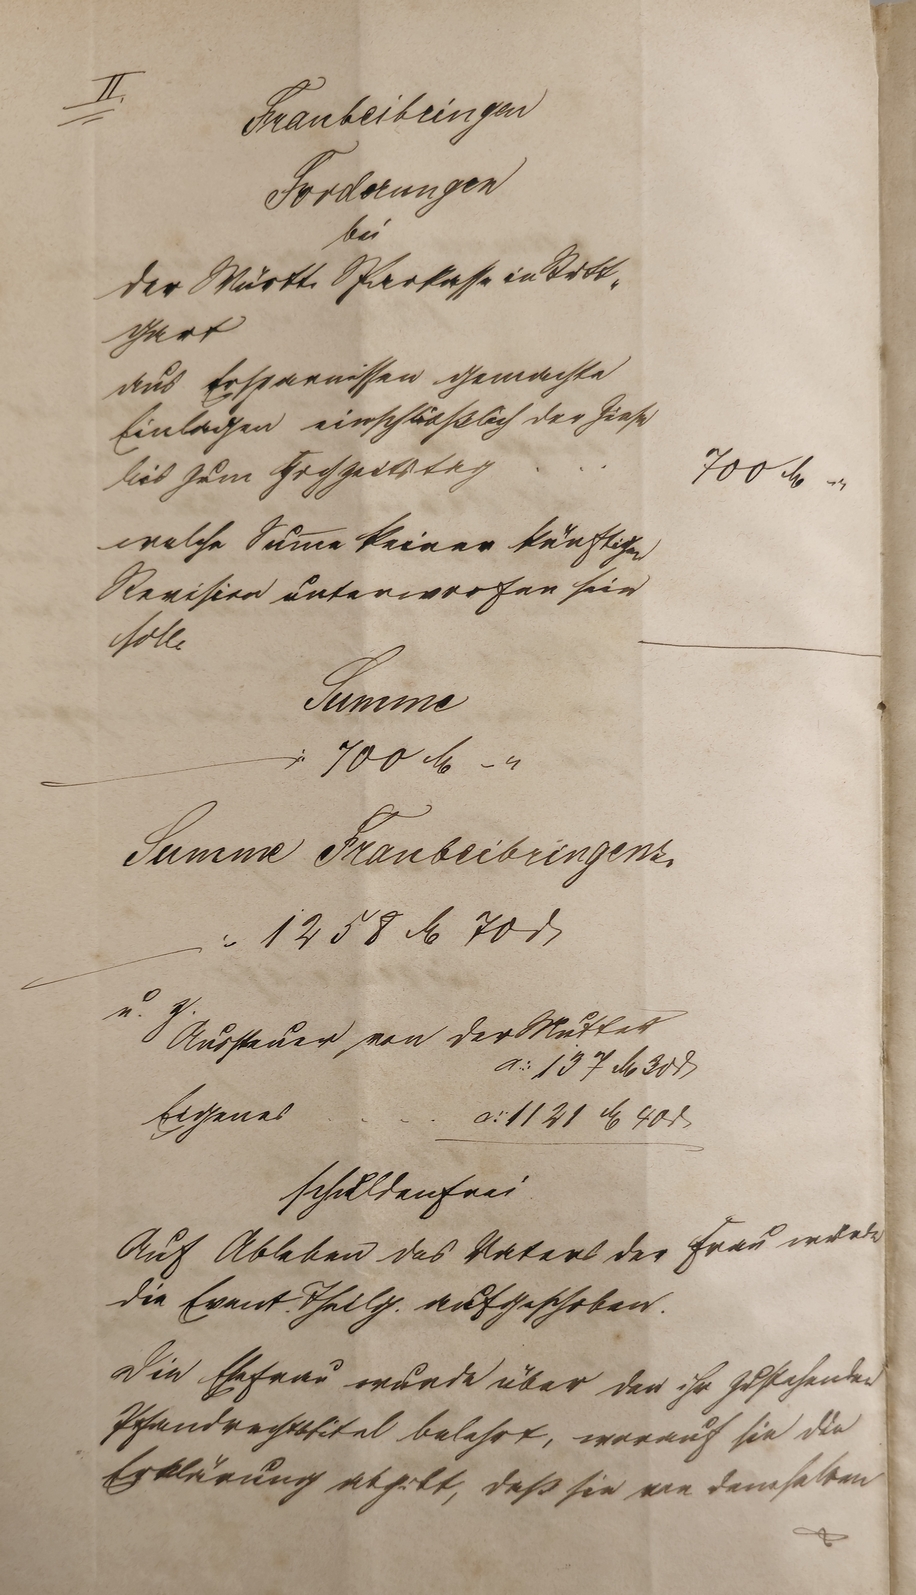 II.
Fraubeibringen
Forderungen
bei
der Württ. Sparkasse in Stutt„
gart
aus Ersparnissen gemachte
Einlagen einschließlich der Zinse
bis zum Hochzeitstag . . .
700 M -"
welche Sum̄e keiner künftigen
Revision unterworfen sein
solle
Summe
: 700 M -"
Summe Fraubeibringens.
: 1258 M 70 d
u. z.
Aussteuer von der Mutter
a: 137 M 30 d
Eigenes . . . . a: 1121 M 40 d
schuldenfrei
Auf Ableben des Vaters der Frau wurde
die Event. Theilg. aufgeschoben.
Die Ehefrau wurde über den ihr zustehenden
Pfandrechtstitel belehrt, worauf sie die
Erklärung abgibt, daß sie von demselben